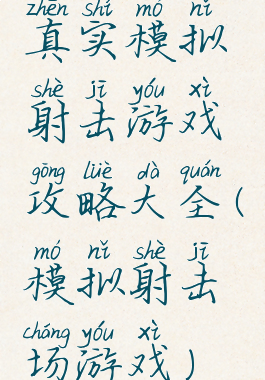 zhēn shí mó nǐ
真实模拟
shè jī yóu xì
射击游戏
gōng lüè dà quán
攻略大全(
mó nǐ shè jī
模拟射击
chǎng yóu xì
场游戏)